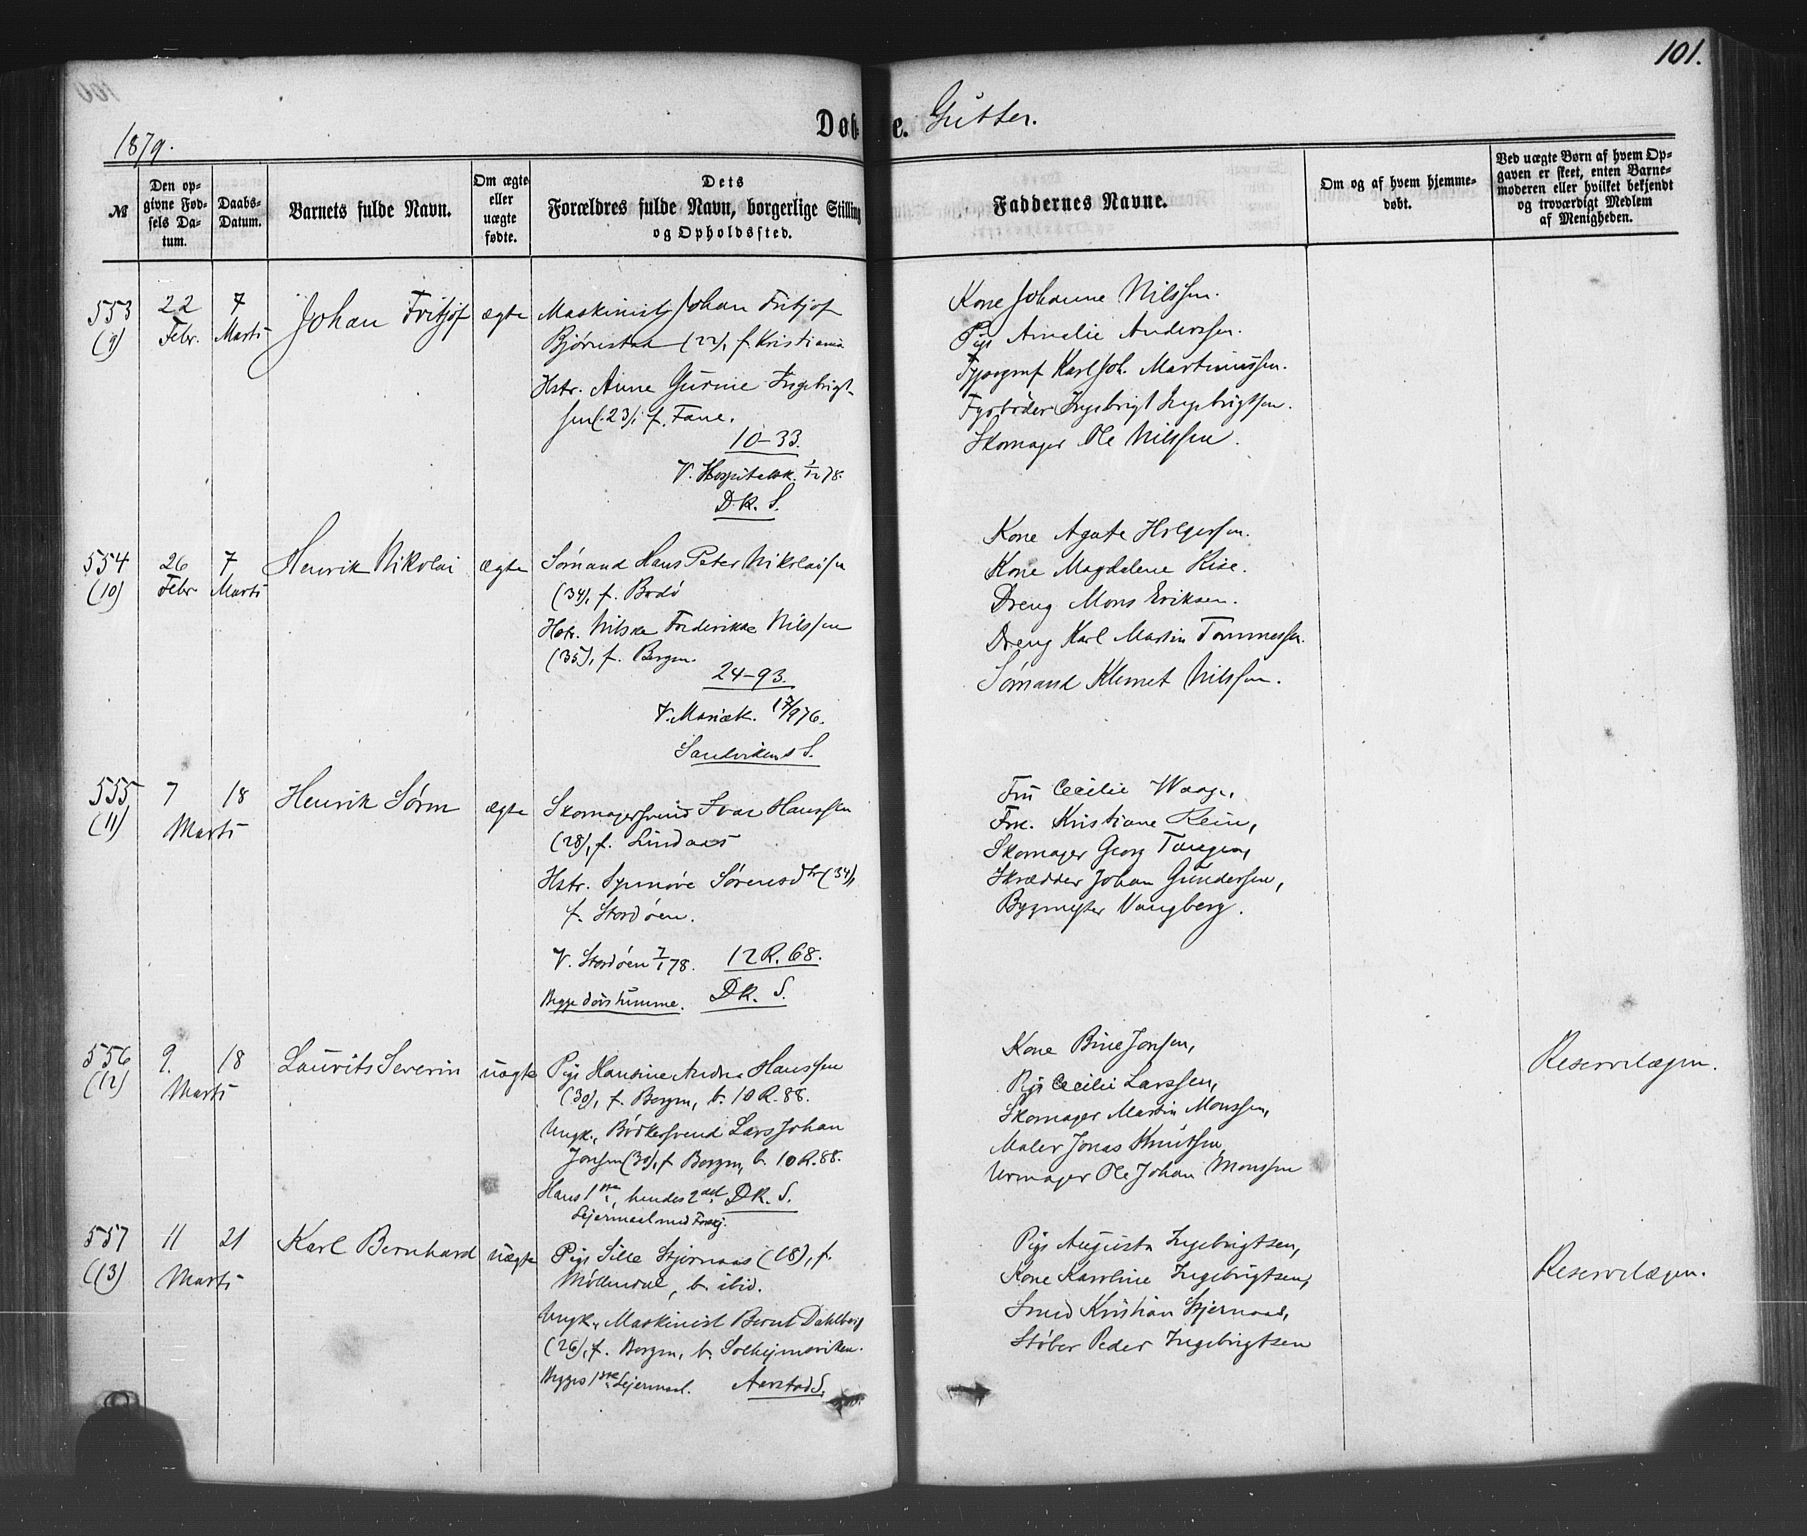 101.
1879.
Døb e. Gutter.
№
Den op-
givne Fød-
sels Da-
tum.
Daabs-
Datum.
Barnets fulde Navn.
Om ægte
eller
uægte
fødte.
Dets
Forældres fulde Navn, borgerlige Stilling
og Opholdssted.
Faddernes Navne.
Om og af hvem hjemme-
døbt.
Ved uægte Børn af hvem Op-
gaven er skeet, enten Barne-
moderen eller hvilket bekjendt
og troværdigt Medlem
af Menigheden.
553
(9)
22
Febr.
7
Marts
Johan Fritjof
ægte
Maskinist Johan Fritjof
Bjørnstad (22), f. Kristiania
Hstr. Anne Gurine Ingebrigt-
sen (23), f. Fane.
10-33.
V. Hospitalsk. 1/12 78.
D.K. S.
Kone Johanne Nilssen.
Pige Amelie Anderssen.
Typograf Karl Joh. Martinussen.
Fyrbøder Ingebrigt Ingebrigtsen.
Skomager Ole Nilssen.
554
(10)
26
Febr.
7
Marts
Henrik Nikolai
ægte
Sømand Hans Peter Nikolaisen
(34), f. Bodö
Hstr. Nilske Frederikke Nilssen
(35), f. Bergen.
24-93.
V. Mariæk. 17/9 76.
Sandvikens S.
Kone Agate Holgersen.
Kone Magdalene Rise.
Dreng Mons Eriksen.
Dreng Karl Martin Tommessen.
Sømand Klemet Nilssen.
555
(11)
7
18
Marts
Henrik Sørm
ægte
Skomagersvend Ivar Hanssen
(28), f. Lindaas
Hstr. Synnøve Sørensdtr (34),
f. Stordøen.
V. Stordøen 7/1 78. 12 R. 68.
Begge døvstumme. DK. S.
Fru Cecilie Waage,
Frk. Kristiane Rein,
Skomager Georg Tangen,
Skrædder Johan Gundersen,
Bygmester Vangberg.
556
(12)
9.
18
Marts
Laurits Severin
uægte
Pige Hansine Andrea Hanssen
(30), f. Bergen, b. 10 R. 88.
Ungk., Bødkersvend Lars Johan
Jonsen (30), f. Bergen, b. 10 R. 88.
Hans 1ste, hendes 2det DK. S.
Lejermaal med Forskj.
Kone Bine Jonsen,
Pige Cecilie Larssen,
Skomager Martin Monssen,
Maler Jonas Knutsen
Urmager Ole Johan Monssen
Reservelægen.
557
(13)
11
21
Marts
Karl Bernhard
uægte
Pige Sille Stjernaas (18), f.
Møllendal, b. ibid.
Ungk., Maskinist Bernt Dahlberg
(26), f. Bergen, b. Solheimsviken.
Begges 1ste Lejermaal. Aarstad S.
Pige Augusta Ingebrigtsen,
Kone Karoline Ingebrigtsen,
Smed Kristian Stjernaas,
Støber Peder Ingebrigtsen
Reservelægen.